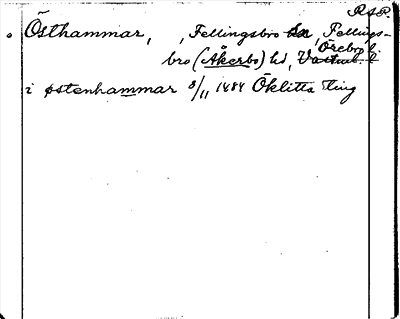 RAP.
Östhammar, , Fellingsbro sn, Fellings-
bro (Åkerbo) hd, Örebro l.
i østenhammar 8/11 1484 Öklitta Ting